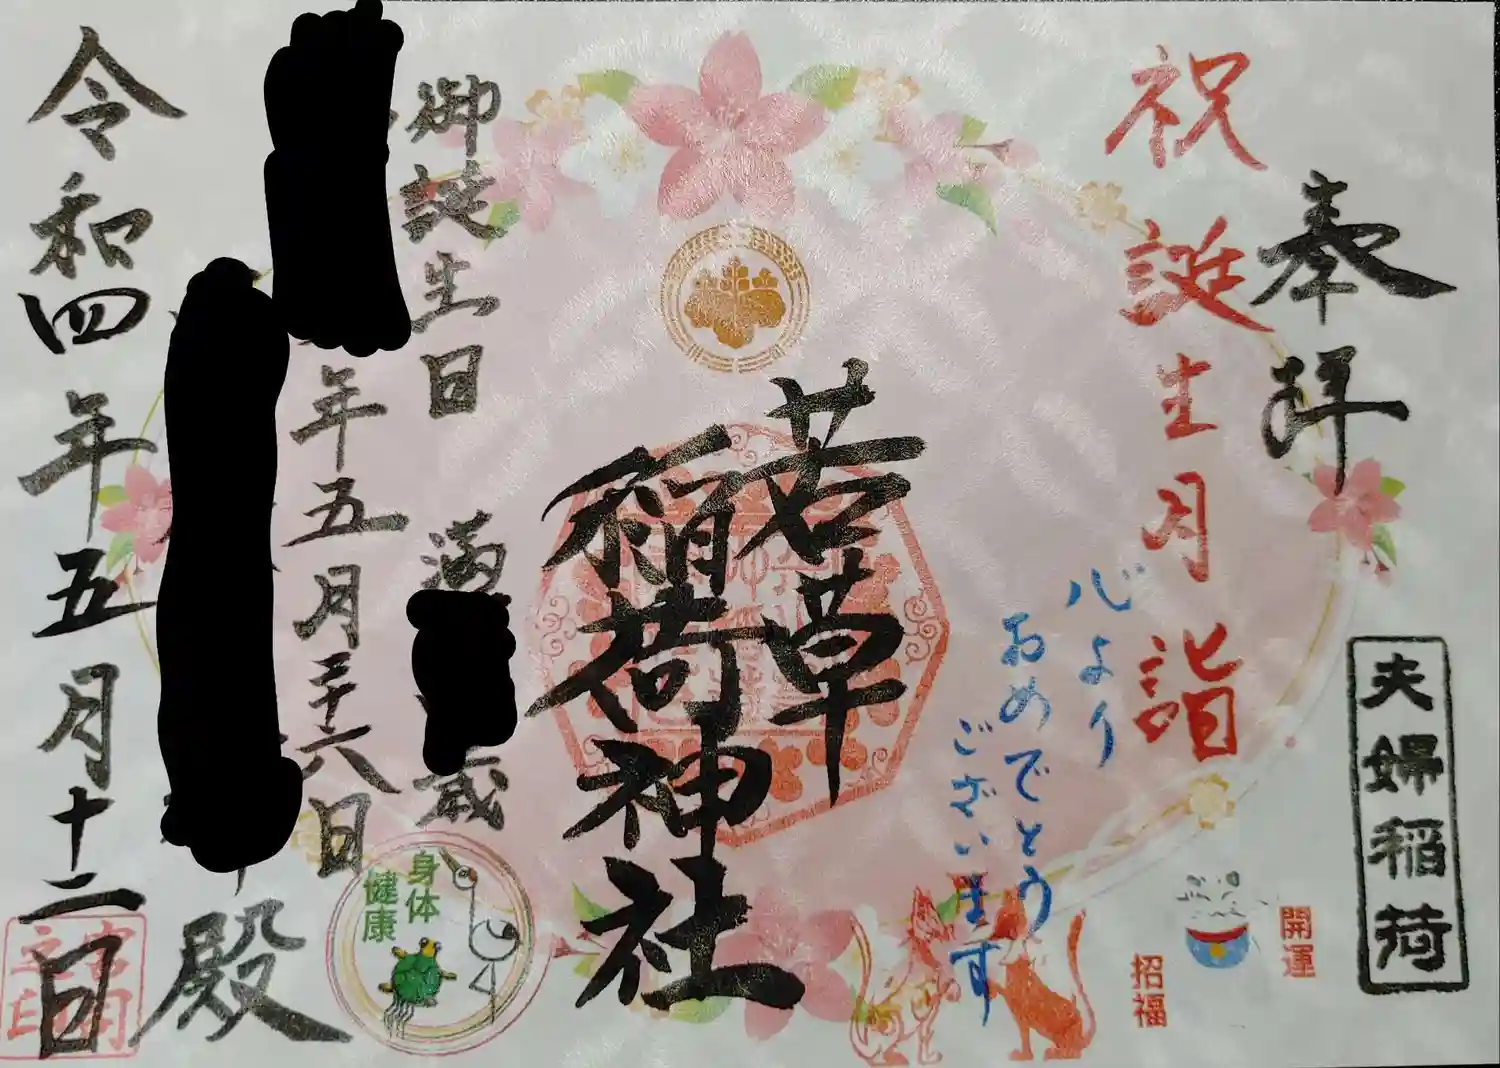 奉拝
夫婦稲荷
祝誕生月詣
心より
おめでとう
ございます
開運
招福
若草
稲荷神社
御誕生日 満 歳
年五月二十六日
殿
身体
健康
令和四年五月十二日